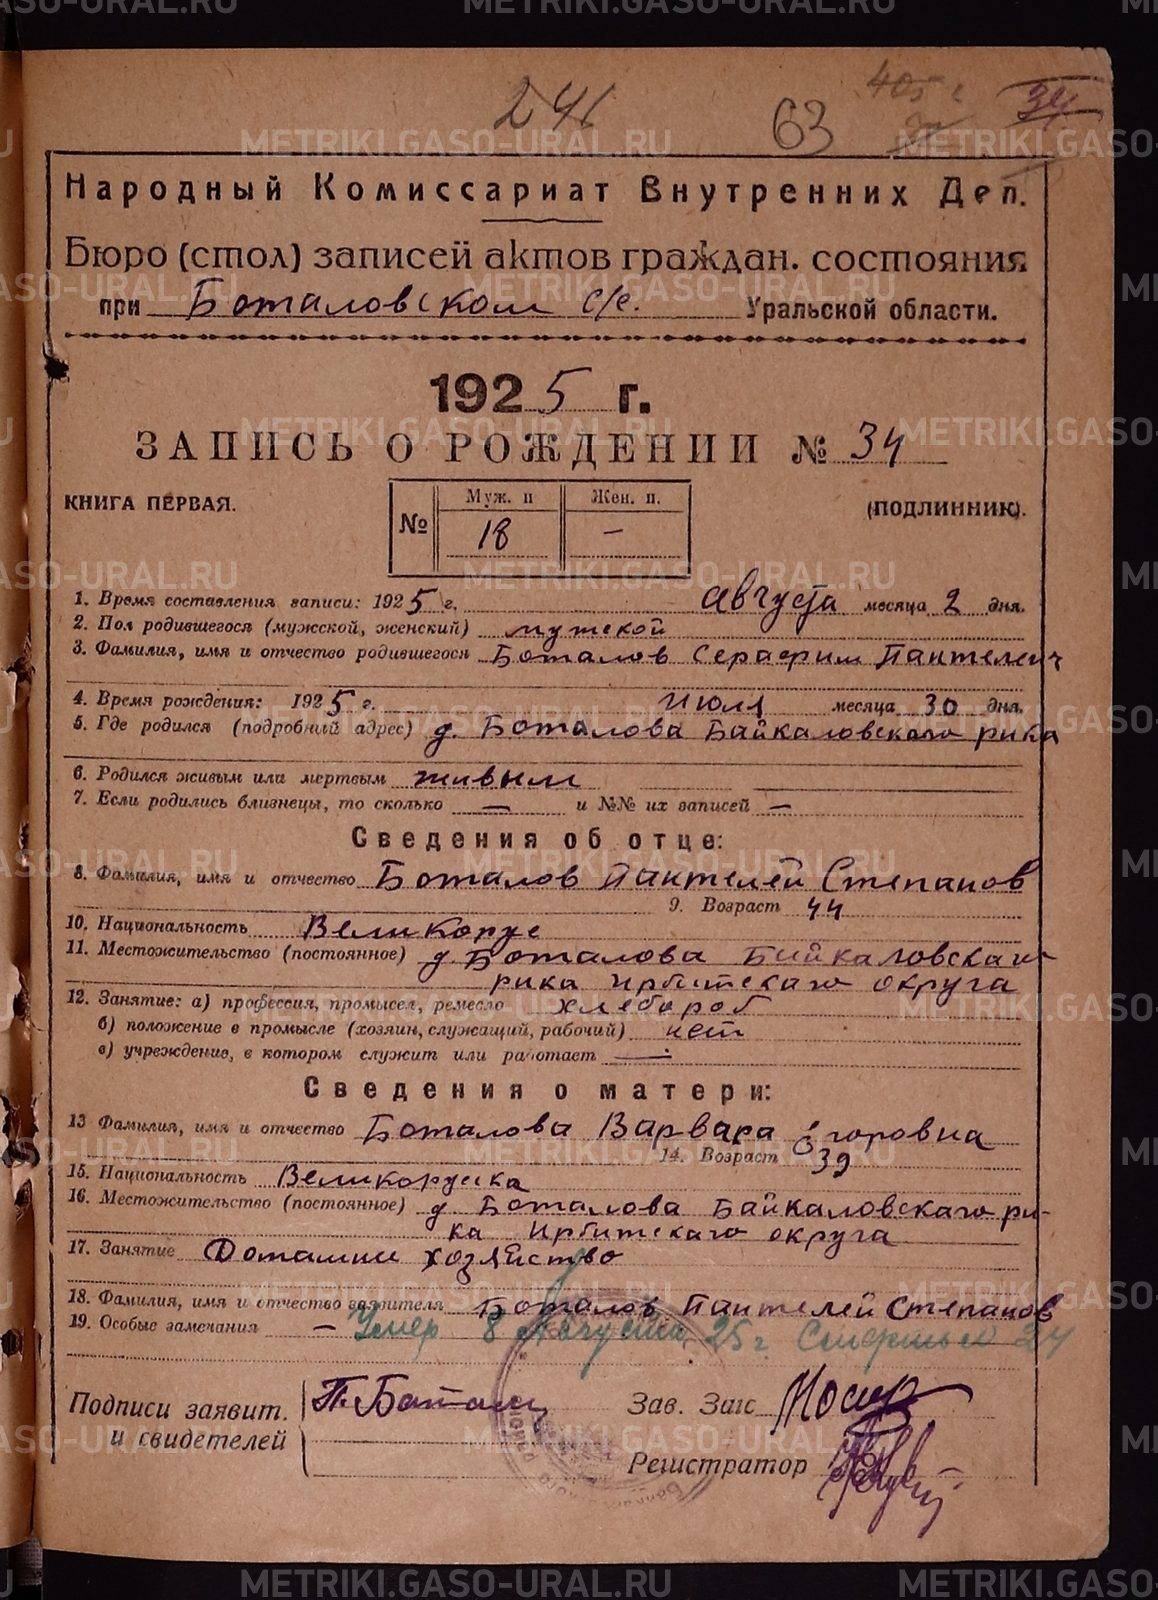 241 63 34
Народный Комиссариат Внутренних Дел.
Бюро (стол) записей актов граждан. состояния
при Боталовском с/с. Уральской области.
1925 г.
ЗАПИСЬ О РОЖДЕНИИ № 34
КНИГА ПЕРВАЯ. № Муж. п 18 Жен. п. — (ПОДЛИННИК).
1. Время составления записи: 1925 г. Августа месяца 2 дня.
2. Пол родившегося (мужской, женский) мужской
3. Фамилия, имя и отчество родившегося Боталов Серафим Пантелеич
4. Время рождения: 1925 г. июля месяца 30 дня.
5. Где родился (подробний адрес) д. Боталова Байкаловского рика
6. Родился живым или мертвым живым
7. Если родились близнецы, то сколько — и №№ их записей —
Сведения об отце:
8. Фамилия, имя и отчество Боталов Пантелей Степанов
9. Возраст 44
10. Национальность Великорус
11. Местожительство (постоянное) д. Боталова Байкаловскаго
рика Ирбитскаго округа
12. Занятие: а) профессия, промысел, ремесло хлебороб
б) положение в промысле (хозяин, служащий, рабочий) нет
в) учреждение, в котором служит или работает —
Сведения о матери:
13 Фамилия, имя и отчество Боталова Варвара Егоровна
14. Возраст 39
15. Национальность Великоруска
16. Местожительство (постоянное) д Боталова Байкаловскаго ри-
ка Ирбитскаго округа
17. Занятие Доташни хозяйство
18. Фамилия, имя и отчество заявителя Боталов Пантелей Степанов
19. Особые замечания — Умер 8 Августа 25 г.
Подписи заявит. П. Боталов Зав. Загс
и свидетелей
Регистратор
METRIKI.GASO-URAL.RU